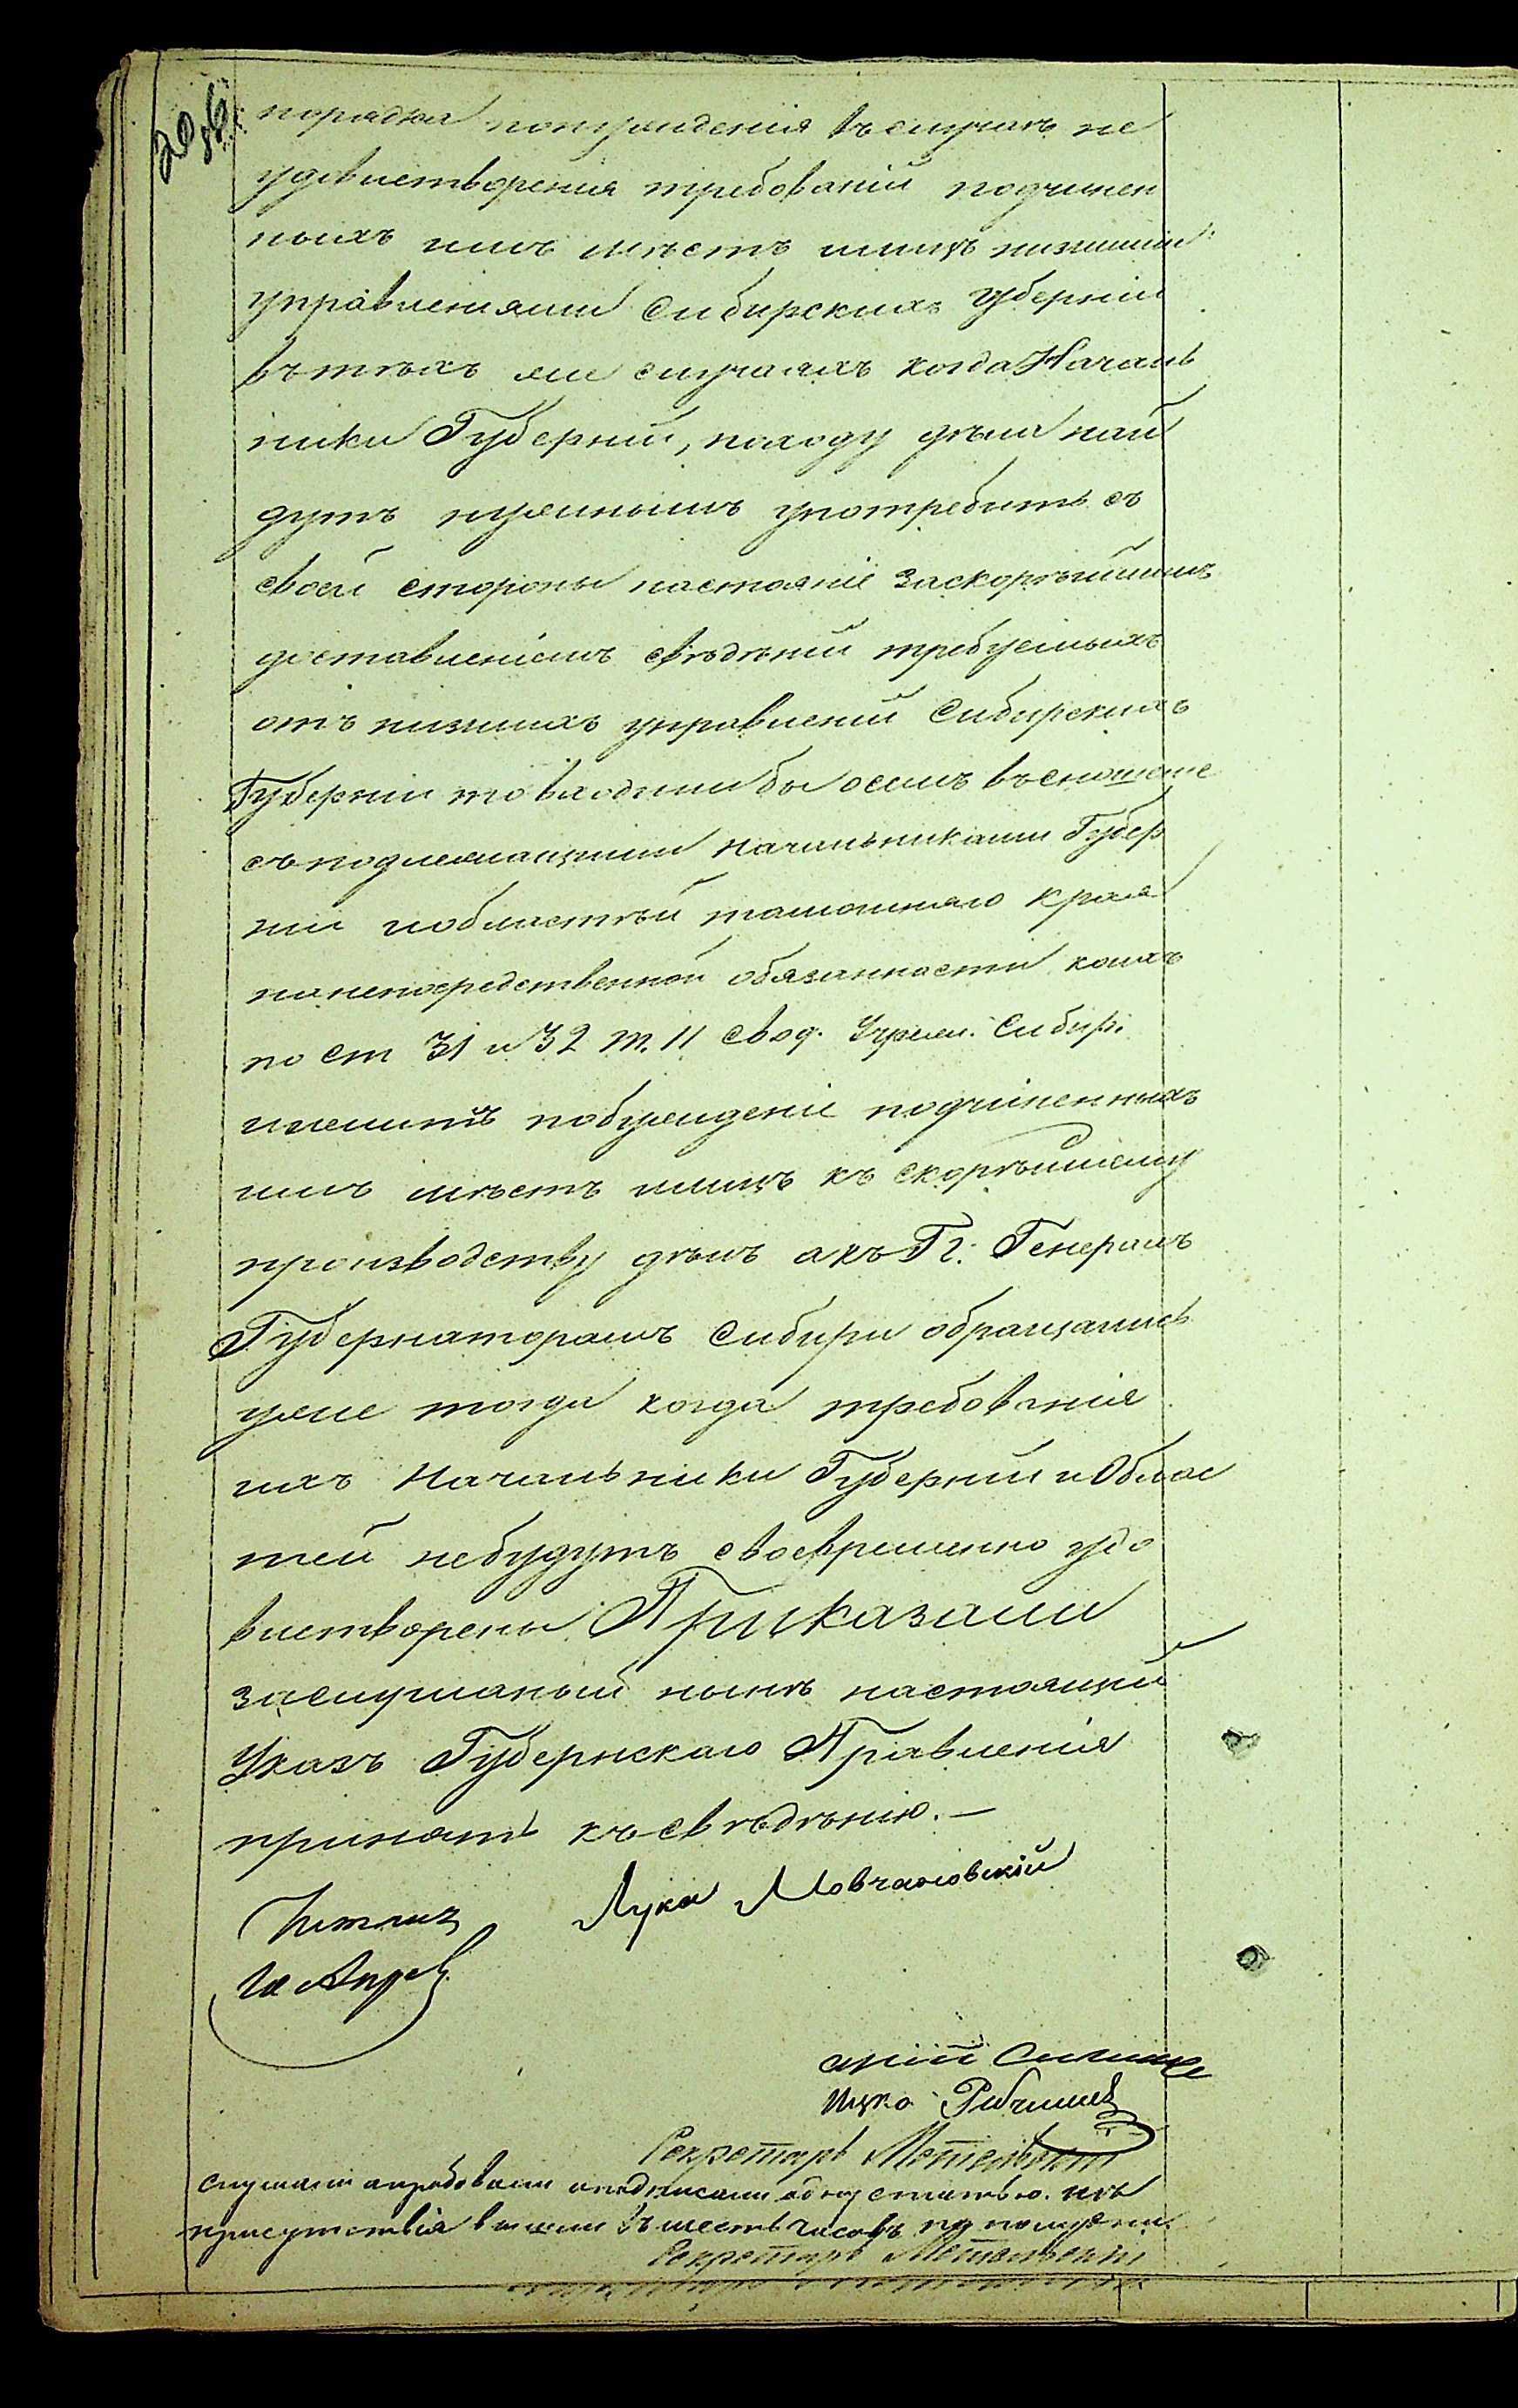 порядка понужденія въ случаѣ не
удовлетворенія требованій подчинен
ныхъ имъ мѣстъ илицъ низшими
управленіями Сибирскихъ губерній
въ тѣхъ же случаяхъ когда Началь
ники Губерній, походу дѣла най
дутъ нужнымъ употребить съ
своей стороны настояніе заскорѣйшимъ
доставленіемъ свѣдѣній требуемыхъ
отъ низшихъ управленій Сибирскихъ
Губерній то входили бы осемъ въ сношеніе
съ подлежащими Начальниками Губер
ній и областей тамошняго края
на непосредственной обязанности коихъ
по ст 31 и 32 т. II Свод. Учреж. Сибир.
лежитъ побужденіе подчиненныхъ
имъ мѣстъ илицъ къ скорѣйшему
производству дѣлъ а къ Гг. Генералъ
Губернаторамъ Сибири обращались
уже тогда когда требованія
ихъ Начальники Губерній и Облас
тей небудутъ своевременно удо
влетворены Приказали
заслушаный нынѣ настоящій
Указъ Губернскаго Правленія
принять къ свѣдѣнію. —
Лука Мовчановскій
Ицко
Секретарь
Слушали апробовали иподписали одну статью. изъ
присутствія вышли въ шесть часовъ по полудни.
Секретарь